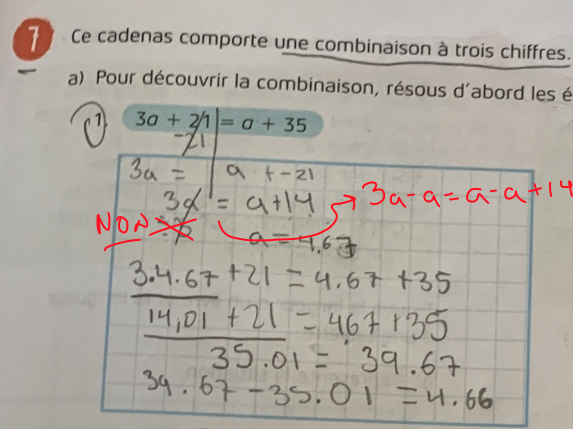 7 Ce cadenas comporte une combinaison à trois chiffres.
a) Pour découvrir la combinaison, résous d'abord les é
1 3a + 21 = a + 35
-21
3a = a + -21
3a = a + 14 → 3a - a = a - a + 14
NON
a = 4.67
3.4.67 + 21 = 4.67 + 35
14,01 + 21 = 467 + 35
35.01 = 39.67
39.67 - 35.01 = 4.66